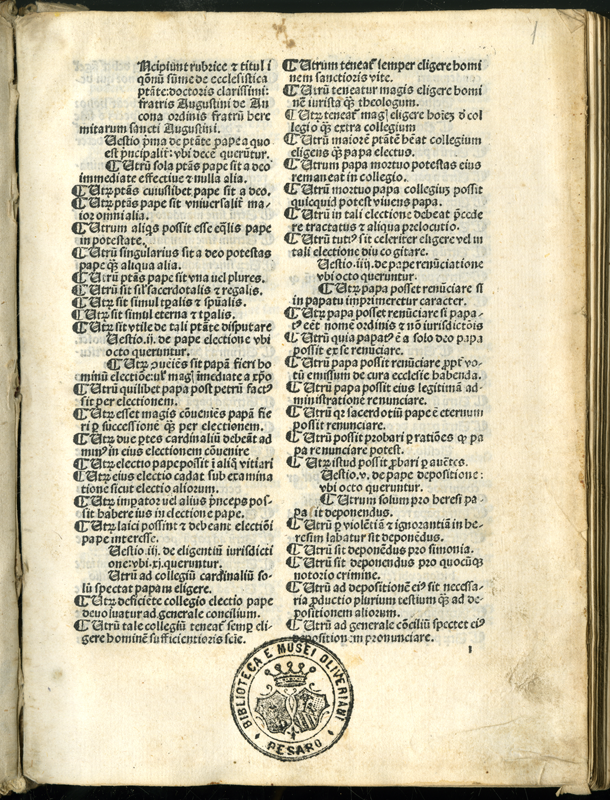 1
Ncipiunt rubrice ⁊ titul i
q̄onū sūme de ecclesiastica
ptāte: doctoris clarissimi:
fratris Augustini de An
cona ordinis fratrū here
mitarum sancti Augustini.
Uestio p̄ma de ptāte pape a quo
est p̄ncipalit̄: vbi decē querūtur.
¶ Utrū sola ptās pape sit a deo
immediate effectiue ⁊ nulla alia.
¶ Utrꝫ ptās cuiuslibet pape sit a deo.
¶ Utrꝫ ptās pape sit vniuersalit̄ ma-
ior omni alia.
¶ Utrum aliq̄s possit esse eq̄lis pape
in potestate.
¶ Utrū singularius sit a deo potestas
pape q̄ꝫ aliqua alia.
¶ Utrū ptās pape sit vna uel plures.
¶ Utrū sit sil̄ sacerdotalis ⁊ regalis.
¶ Utrꝫ sit simul tp̄alis ⁊ sp̄ualis.
¶ Utrꝫ sit simul eterna ⁊ tp̄alis.
¶ Utrꝫ sit vtile de tali ptāte disputare
Uestio .ij. de pape electione vbi
octo queruntur.
¶ Utrꝫ ꝯueiēs sit papā fieri ho
minū electiōe: ul̓ mag̣ īmediate a xp̄o
¶ Utrū quilibet papa post petrū fact᷒
sit per electionem.
¶ Utrꝫ esset magis cōueniēs papā fie
ri ꝑ successionē q̄ꝫ per electionem.
¶ Utrꝫ due ꝑtes cardinaliū debeāt ad
min᷒ in eius electionem cōuenire
¶ Utrꝫ electio pape possit ī aliq̄ vitiari
¶ Utrꝫ eius electio cadat sub examina
tione sicut electio aliorum.
¶ Utrꝫ impator uel alius p̄nceps pos-
sit habere ius in electione pape.
¶ Utrꝫ laici possint ⁊ debeant electiōi
pape interesse.
Uestio .iij. de eligentiū iurisdicti
one: vbi .xj. queruntur.
Utrū ad collegiū cardinaliū so-
lū spectat papam eligere.
¶ Utrꝫ deficiēte collegio electio pape
deuoluatur ad generale concilium.
¶ Utrū tale collegiū teneat᷑ semꝑ eli-
gere hominē sufficientioris scīe.
¶ Utrum teneat᷑ semper eligere homi
nem sanctioris vite.
¶ Utrū teneatur magis eligere homi
nē iuristā q̄ꝫ theologum.
¶ Utrꝫ teneat᷑ mag̣ eligere hoīeꝫ d̄ col
legio q̄ꝫ extra collegium
¶ Utrū maiorē ptātē hēat collegium
eligens q̄ꝫ papa electus.
¶ Utrum papa mortuo potestas eius
remaneat in collegio.
¶ Utrū mortuo papa collegiuꝫ possit
quicquid potest viuens papa.
¶ Utrū in tali electione debeat p̄cede
re tractatus ⁊ aliqua prelocutio.
¶ Utrū tuti᷒ sit celeriter eligere vel in
tali electione diu cogitare.
Uestio .iiij. de pape renūciatione
vbi octo queruntur.
¶ Utrꝫ papa posset renūciare si
in papatu imprimeretur caracter.
¶ Utrꝫ papa posset renūciare si papa-
t᷒ eēt nomē ordinis ⁊ nō iurisdictōis
¶ Utrū quia papat᷒ ē a solo deo papa
possit ex se renūciare.
¶ Utrū papa possit renūciare ꝓpt̄ vo-
tū emissum de cura ecclesie habenda.
¶ Utrū papa possit eius legitimā ad-
ministratione renunciare.
¶ Utrū qꝛ sacerdotiū pape ē eternum
possit renunciare.
¶ Utrū possit probari ꝑ ratiōes ꝙ pa
pa renunciare potest.
¶ Utrꝫ istud possit ꝓbari ꝑ auc̄tes.
Uestio .v. de pape depositione:
vbi octo queruntur.
¶ Utrum solum pro heresi pa-
pa sit deponendus.
¶ Utrū ꝑ violētiā ⁊ ignorantiā in he-
resim labatur sit deponēdus.
¶ Utrū sit deponēdus pro simonia.
¶ Utrū sit deponendus pro quocūqꝫ
notorio crimine.
¶ Utrū ad depositionē ei᷒ sit necessa-
ria ꝓductio plurium testium q̄ꝫ ad de-
positionem aliorum.
¶ Utrū ad generale cōciliū spectet ei᷒
depositionem pronunciare.
1
BIBLIOTECA E MUSEI OLIVERIANI
PESARO